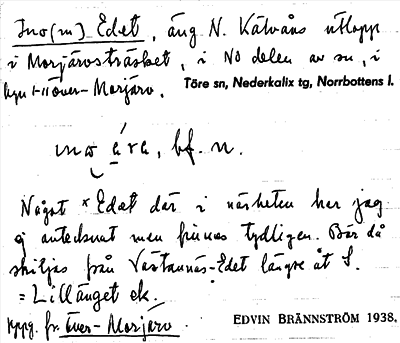 Ino(m) Edet, äng N. Kälvåns utlopp
i Morjärvsträsket, i NO delen av sn, i
byn Över-Morjärv. Töre sn, Nederkalix tg, Norrbottens l.
ino é̱ra, bf. n.
Något ˣEdet där i närheten har jag
ej antecknat men finnes tydligen. Bör då
skiljas från Västannäs-Edet längre åt S.
= Lillänget ek.
Uppg. fr. Över-Morjärv. EDVIN BRÄNNSTRÖM 1938.